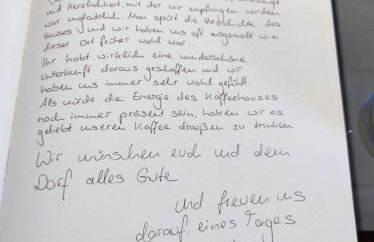 und Herzlichkeit, mit der wir empfangen wurden
war unglaublich. Man spürt die Geschichte des
Hauses und wir haben uns oft ausgemalt wie
dieser Ort früher wohl war...
Ihr habt wirklich eine wunderschöne
Unterkunft daraus geschaffen und wir
haben uns immer sehr wohl gefühlt.
Als würde die Energie des Kaffeehauses
noch immer präsent sein, haben wir es
geliebt unseren Kaffee draußen zu trinken
Wir wünschen euch und dem
Dorf alles Gute
und freuen uns
darauf eines Tages